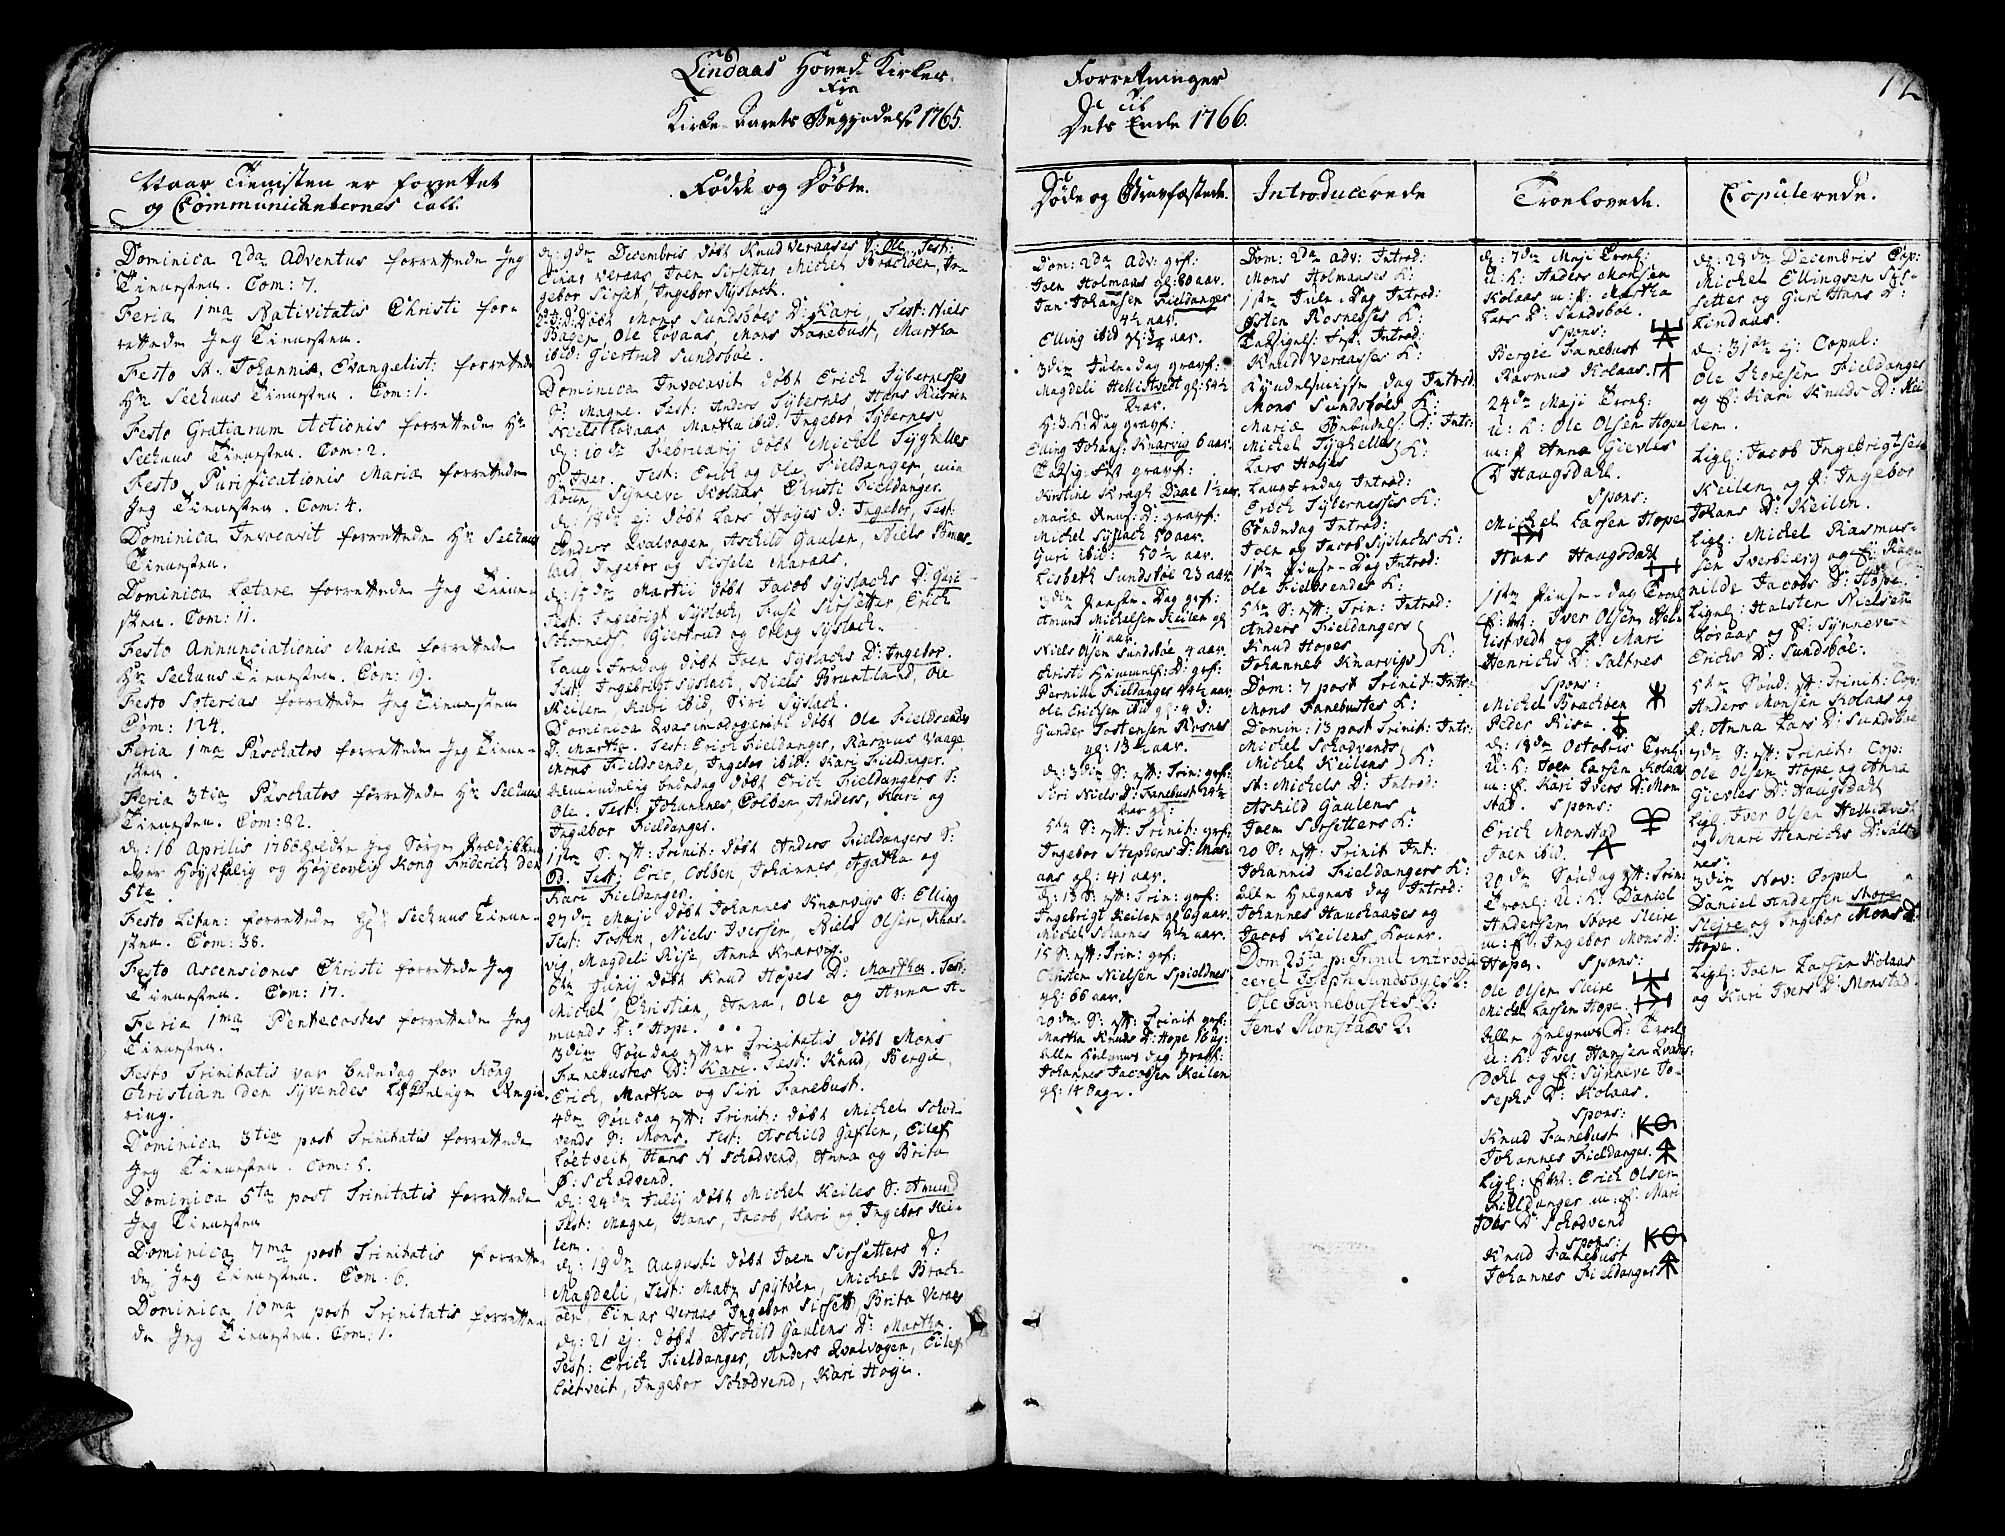 Lindaas Hoved Kirkes
Fra
Kirke-Aarets Begyndelse 1765.
Forretninger
Til
Dets Ende 1766.
12
Naar Tienisten er forrettet
og Communicanternes Tall.
Dominica 2da Adventus forrettede Jeg
Tienesten. Com: 7.
Feria 1ma Nativitatis Christi for-
rettede Jeg Tienesten.
Festo St. Johannis, Evangelist: forrettede
Hr Seehuus Tienesten. Com: 1.
Festo Gratiarum Actionis forrettede Hr
Seehuus Tienesten. Com: 2.
Festo Purificationis Mariæ forrettede
Jeg Tienesten. Com: 4.
Dominica Invocavit forrettede Hr Seehuus
Tienesten.
Dominica Lætare forrettede Jeg Tiene-
sten. Com: 11.
Festo Annunciationis Mariæ forrettede
Hr Seehuus Tienesten. Com: 19.
Festo Soterias forrettede Jeg Tienesten
Com: 124.
Feria 1ma Paschatos forrettede Jeg Tiene-
sten.
Feria 3tia Paschatos forrettede Hr Seehuus
Tienesten. Com: 82.
d: 16 Aprilis 1766 holdte Jeg Sørge Prædikken
over Høystsalig og Høylovlig Kong Friderich den
5te.
Festo Litan: forrettede Hr Seehuus Tiene-
sten. Com: 38.
Festo Ascensionis Christi forrettede Jeg
Tienesten. Com: 17.
Feria 1ma Pentecostes forrettede Jeg
Tienesten.
Festo Trinitatis var Bededag for Kong
Christian den Syvendes
ring.
Dominica 3tia post Trinitatis forrettede
Jeg Tienesten. Com: 5.
Dominica 5ta post Trinitatis forrettede
Jeg Tienesten
Dominica 7ma post Trinitatis forrette-
de Jeg Tienesten. Com: 6.
Dominica 10ma post Trinitatis forrette-
de Jeg Tienesten. Com: 1.
Fødde og Døbte.
d: 9de Decembris døbt Knud Veraases S: Ole, Test:
Einar Veraas, Joen Sirsetter, Michel Brachøen, In-
gebor Sirset, Ingebor Syslach.
døbt Mons Sundsbøes D: Kari, Test: Niels
Ole Lovaas, Mons Fanebust, Martha
ibid: Giertrud Sundsbøe.
Dominica Invocavit døbt Erich Sybernesses
S: Magne. Test: Anders Sybernes, Hans
Niels Lovaas, Martha ibid: Ingebor Sybernes
d: 10de Februarij døbt Michel Tyghelles
S: Iver. Test: Erich og Ole Fieldanger,
Synneve Kolaas, Christi Fieldanger.
d: 18de ej: døbt Lars Høyes D: Ingebor, Test:
Anders Qvalvogen, Aschild Gaulen, Niels
land, Ingebor og Sissele Maraas.
d: 15de Martii døbt Jacob Syslachs D: Guri
Test: Ingebrigt Syslach, Sirsetter, Erich
Giertrud og Orlog Syslach.
Lang-Fredag døbt Joen Syslachs D: Ingebor.
Test: Ingebrigt Syslach, Niels Bruntland, Ole
Keilen, Kari ibid, Siri Syslach.
Dominica Qvasimodogeniti døbt Ole Fieldsendes
D: Martha. Test: Erich Fieldanger, Rasmus Vaage
Mons Fieldsende, Ingebor ibid: Kari Fieldanger.
Almindelig Bededag døbt Erich Fieldangers S:
Ole. Test: Johannes, Colben, Anders, Kari og
Ingebor Fieldanger.
1ste S: efter: Trinit: døbt Anders Fieldangers S:
Od. Test: Eric, Colben, Johannes, Agatha og
Kari Fieldanger.
27de Maji døbt Johannes Knarvigs S: Elling
Test: Niels Iversen, Niels Olsen, Knar-
vig, Magdeli Riise, Anna Knarvig.
Junij døbt Knud Hopes D: Martha. Test:
Michel, Christian, Anna, Ole og Anna A-
munds D: Hope.
3die Søndag efter Trinitatis døbt Mons
Fanebustes D: Kari. Test: Knud, Bergie,
Erich, Martha og Siri Fanebust.
4de Søndag eft: Trinit: døbt Michel Schod-
vends S: Mons. Test: Aschild Gaulen, Eilef
Løetveit, Hans N Schodvend, Anna og Brita
Schodvend.
d: 24de Julij døbt Michel Keiles S: Amund
Test: Magne, Hans, Jacob, Kari og Ingebor Kei-
len.
d: 19de Augusti døbt Joen Sirsetters D:
Magdeli, Test: Matz Spytøen, Michel Brach-
øen, Einar Veraas, Ingebor Sirsett, Brita Veraas
d: 21 ej: døbt Aschild Gaulens D: Martha.
Test: Erich Fieldanger, Anders Qvalvogen, Eilef
Løetveit, Ingebor Schodvend, Kari Høye.
Døde og Gravfæstede.
Dom: 2da Adv: grf:
Joen Holmaas gl: 80 aar.
Jan Johansen Fieldanger
4½ aar.
Elling ibid gl: ¾ aar.
3die Jule-Dag gravf:
Magdeli Hellistvedt gl: 54½
aar.
H: 3: K: Dag gravf:
Elling Johans: Knarvig 6 aar.
Taksig: Fest gravf:
Kirstine Kragh Daae 1½ aar.
Mariæ Rens: D: gravf:
Michel Syslach 50 aar.
Guri ibid: 50½ aar.
Lisbeth Sundsbøe 23 aar
3die Paaske-Dag grf:
Amund Michelsen Keilen gl
11 aar.
Niels Olsen Sundsbøe 4 aar.
Christi Himmelf: D: grf:
Pernille Fieldanger 44½ aar
Ole Erichsen ibid gl: 4 d:
Gunder Tostensen Rosnes
gl: 13½ aar.
d: 3die S: eft: Trin: grf:
Siri Niels D: Fanebust 24½
aar gl:
5te S: eft: Trinit: grf:
Ingebor Stephens D: Mara
aas gl: 41 aar.
d: 13 S: eft: Trin: grf:
Ingebrigt Keilen gl 69 aar.
Michel Scharnes 4½ aar.
15 S: eft: Trin: grf:
Christen Nielsen Spieldnes
gl: 66 aar.
20de S: eft: Trinit grf:
Martha Knuds D: Hope 16 ug:
Alle Helgens Dag gravf:
Johannes Jacobsen Keilen
gl: 14 Dage.
Introducerede
Dom: 2da Adv: Introd:
Mons Holmaases K:
1ste Jule-Dag Introd:
Østen Rosnesses K:
Taksigels: Fest: Introd:
Knud Veraases K:
Kyndelmisse Dag Introd:
Mons Sundsbøes K:
Mariæ Bebudels: D: Intr:
Michel Tyghelles
Lars Høyes } K:
Langfredag Introd:
Erich Sybernesses K:
Bededag Introd:
Joen og Jacob Syslachs K:
1ste Pintse-Dag Introd:
Ole Fieldsendes K:
5te S: eft: Trin: Introd:
Anders Fieldangers
Knud Hopes
Johannes Knarvigs } K:
Dom: 7 post Trinit: Intr:
Mons Fanebustes K:
Domin: 13 post Trinit: Intr:
Michel Schodvends
Michel Keilens } K:
St: Michels D: Introd:
Aschild Gaulens
Joen Sirsetters K:
20 S: eft: Trinit Int:
Johannis Fieldangers K:
Alle Helgens Dag Introd:
Johannes Haukaases og
Jacob Keilens Koner.
Dom: 25ta p: Trinit introdu-
ceret Joseph Sundsbyes K:
Ole Fannebustes K:
Jens Monstads K:
Troelovede.
d: 7de Maji Troel:
U: K: Anders Monsen
Kolaas m: P: Martha
Lars D: Sundsbøe.
Spons:
Bergie Fanebust
Rasmus Kolaas.
24de Maji Troel:
U: K: Ole Olsen Hope
m: P Anna Gievles
D Haugsdahl.
Spons:
Michel Larsen Hope
Hans Haugsdahl
1ste Pintse-Dag Troel
E: K: Iver Olsen Hel-
listvedt og P Mari
Henrichs D: Saltnes
Spons:
Michel Brachøen
Peder Riise.
d: 18de Octobris Troel:
U: K: Joen Larsen Kolaas
m: P: Kari Ivers D: Mon-
stad. Spons:
Erich Monstad
Joen ibid.
20de Søndag eft: Trin:
Troel: U: K: Daniel
Andersen Store Sleire
m: P: Ingebor Mons D:
Hope. Spons:
Ole Olsen Sleire
Michel Larsen Hope.
Alle Helgens D: Troel:
U: K: Iver Hansen Qvams-
Dahl og P: Synneve Jo-
sephs D: Kolaas.
Spons:
Knud Fanebust KO
Johannes Fieldanger.
Ligl: Erich Olsen
Fieldanger m: P: Mari
Joens D: Schodvend
Spons:
Knud Fanebust KO
Johannes Fieldanger
Copulerede.
d: 28de Decembris Cop:
Michel Ellingsen Sir-
setter og Guri Hans D:
Lindaas.
d: 31de ej: Copul:
Ole Fieldanger
og P: Kari Knuds D: Kei-
len.
Ligl: Jacob Ingebrigtsen
Keilen og P: Ingebor
Johans D: Keilen.
Ligl: Michel Rasmus-
sen Sverbierg og P: Rag-
nilde Jacobs D: Hope.
Ligl: Halsten Nielsen
Lovaas og P: Synneve
Erichs D: Sundsbøe.
5te Sønd: eft: Trinit: Cop:
Anders Monsen Kolaas og
P: Anna Lars D: Sundsbøe
7de S: eft: Trinit: Cop:
Ole Olsen Hope og Anna
Gievles D: Haugsdahl
Ligl: Iver Olsen Hellistvedt
og Mari Henrichs D: Salt-
nes.
3die Nov: Copul
Daniel Andersen Store
Sleire og Ingebor Mons D:
Hope.
Ligl: Joen Larsen Kolaas
og Kari Ivers D: Monstad.